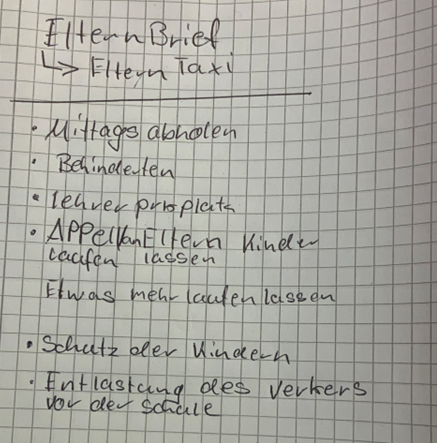 ElternBrief
↳ Eltern Taxi
• Mittags abholen
• Behinderten
• Lehrer prkplatz
• Appell an Eltern Kinder
laufen lassen
Etwas mehr laufen lassen
• Schutz der Kindern
• Entlastung des verkers
vor der Schule